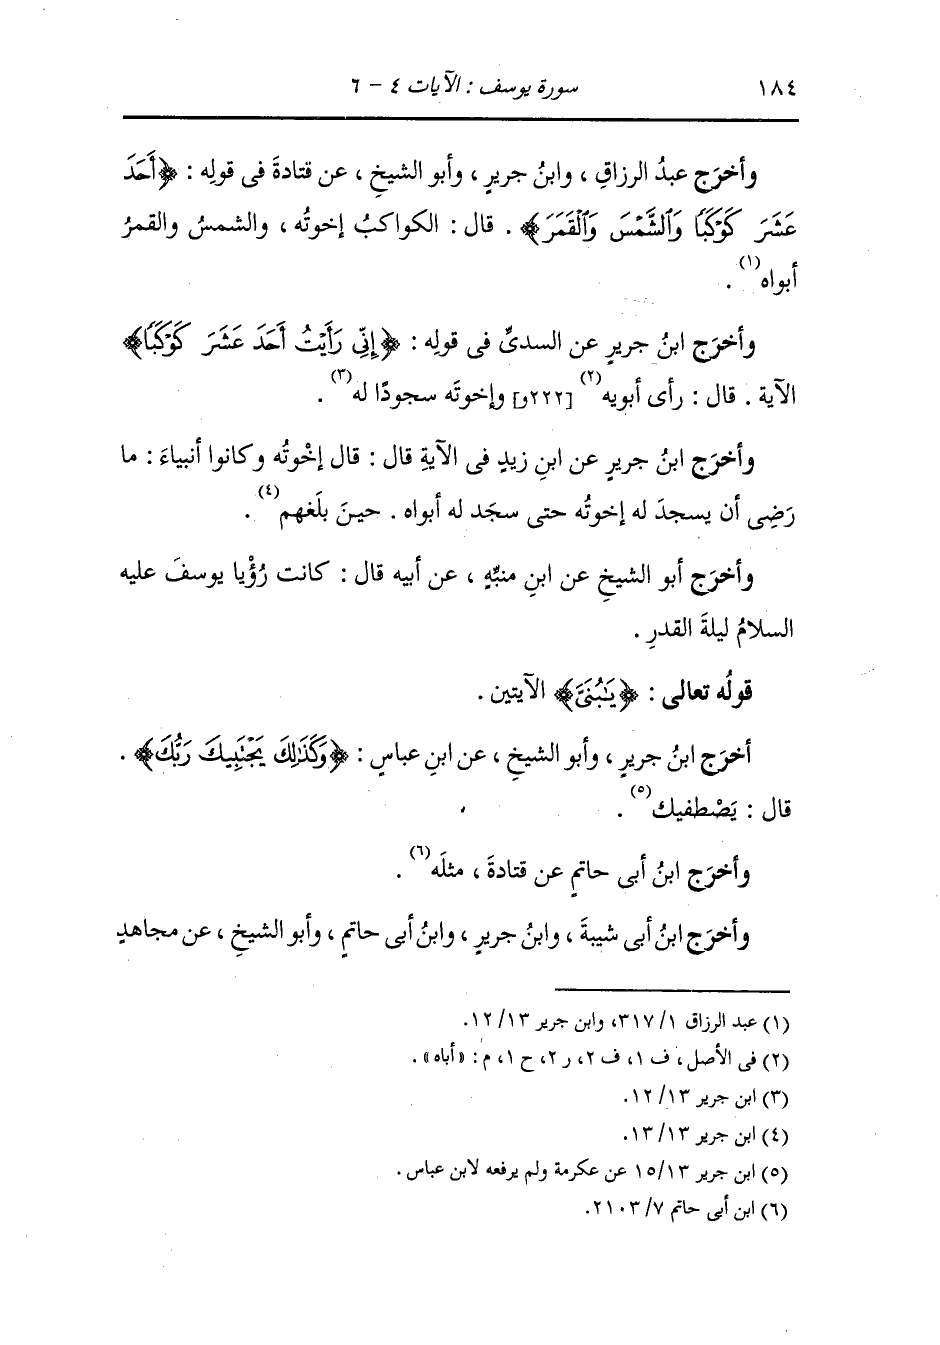 ١٨٤ سورة يوسف : الآيات ٤ - ٦
وأخرَج عبدُ الرزاقِ ، وابنُ جريرٍ ، وأبو الشيخِ ، عن قتادةَ فى قولِه : ﴿أَحَدَ
عَشَرَ كَوْكَبًا وَٱلشَّمْسَ وَٱلْقَمَرَ﴾ . قال : الكواكبُ إخوتُه ، والشمسُ والقمرُ
أبواه(١) .
وأخرَج ابنُ جريرٍ عن السدىِّ فى قولِه : ﴿إِنِّى رَأَيْتُ أَحَدَ عَشَرَ كَوْكَبًا﴾
الآية . قال : رأى أبويه(٢) [٢٢٢و] وإخوتَه سجودًا له(٣) .
وأخرَج ابنُ جريرٍ عن ابنِ زيدٍ فى الآيةِ قال : قال إخْوتُه وكانوا أنبياءَ : ما
رَضِى أن يسجدَ له إخوتُه حتى سجَد له أبواه . حينَ بلَغهم(٤) .
وأخرَج أبو الشيخِ عن ابنِ منبِّهٍ ، عن أبيه قال : كانت رُؤْيا يوسفَ عليه
السلامُ ليلةَ القدرِ .
قولُه تعالى : ﴿يَـٰبُنَىَّ﴾ الآيتين .
أخرَج ابنُ جريرٍ ، وأبو الشيخِ ، عن ابنِ عباسٍ : ﴿وَكَذَٰلِكَ يَجْتَبِيكَ رَبُّكَ﴾ .
قال : يَصْطفيك(٥) .
وأخرَج ابنُ أبى حاتمٍ عن قتادةَ ، مثلَه(٦) .
وأخرَج ابنُ أبى شيبةَ ، وابنُ جريرٍ ، وابنُ أبى حاتمٍ ، وأبو الشيخِ ، عن مجاهدٍ
(١) عبد الرزاق ١/ ٣١٧، وابن جرير ١٣/ ١٢.
(٢) فى الأصل، ف ١، ف ٢، ر ٢، ح ١، م : «أباه» .
(٣) ابن جرير ١٣/ ١٢.
(٤) ابن جرير ١٣/ ١٣.
(٥) ابن جرير ١٣/ ١٥ عن عكرمة ولم يرفعه لابن عباس .
(٦) ابن أبى حاتم ٧/ ٢١٠٣.